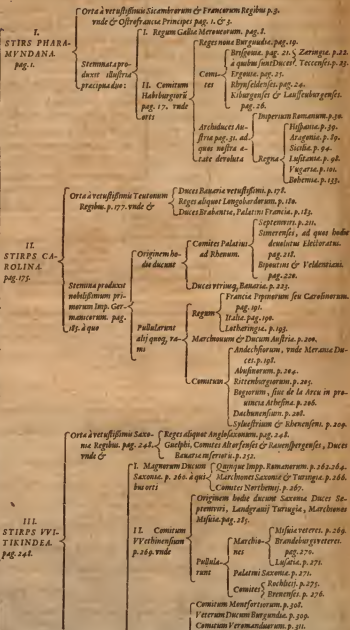 I.
STIRPS PHARA-
MVNDANA.
pag. 1.
Orta à vetustissimis Sicambrorum & Francorum Regibus p. 3.
vnde & Ostrofranciæ Principes pag. 1. & 3.
Stemmata pro-
duxit illustria
præcipua duo:
I. Regum Galliæ Meroueorum. pag. 8.
II. Comitum
Habsburgiorũ
pag. 17. vnde
orti
Reges nouæ Burgundiæ. pag. 19.
Comi-
tes
Brisgouiæ. pag. 21.
à quibus sunt Duces
Zaringiæ. p. 22.
Teccenses. p. 23.
Ergouiæ. pag. 25.
Rhynfeldenses. pag. 24.
Kiburgenses & Lauffenburgenses.
pag. 26.
Archiduces Au-
striæ pag. 31. ad
quos nostra æ-
tate deuoluta
Imperium Romanum. p. 30.
Regna
Hispaniæ. p. 39.
Aragoniæ. p. 89.
Siciliæ. p. 94.
Lusitaniæ. p. 98.
Vngariæ. p. 101.
Bohemiæ. p. 133.
II.
STIRPS CA-
ROLINA.
pag. 175.
Orta à vetustissimis Teutonum
Regibus. p. 177. vnde &
Duces Bauariæ vetustissimi. p. 178.
Reges aliquot Longobardorum. p. 180.
Duces Brabantiæ, Palatini Franciæ. p. 183.
Stemma produxit
nobilissimum pri-
morum Imp. Ger-
manicorum. pag.
185. à quo
Originem ho-
die ducunt
Comites Palatini
ad Rhenum.
Septemviri. p. 211.
Simerenses, ad quos hodie
deuolutus Electoratus.
pag. 218.
Bipontini & Veldentiani.
pag. 220.
Duces vtriusq; Bauariæ. p. 223.
Pullularunt
alij quoq; ra-
mi
Regum
Franciæ Pepinorum seu Carolinorum.
pag. 191.
Italiæ. pag. 190.
Lotharingiæ. p. 193.
Marchionum & Ducum Austriæ. p. 200.
Comitum
Andechsiorum, vnde Meraniæ Du-
ces. p. 198.
Abusinorum. p. 204.
Rittenburgiorum. p. 205.
Bogiorum, siue de Arcu in pro-
uincia Athesina. p. 206.
Dachauensium. p. 208.
Syluestrium & Rhenensium. p. 209.
III.
STIRPS VVI-
TIKINDEA.
pag. 248.
Orta à vetustissimis Saxo-
niæ Regibus. pag. 248.
vnde &
Reges aliquot Anglosaxonum. pag. 248.
Guelphi, Comites Altorfenses & Rauenspergenses, Duces
Bauariæ inferioris. p. 252.
I. Magnorum Ducum
Saxoniæ. p. 260. à qui-
bus orti
Quinque Impp. Romanorum. p. 262. 264.
Marchiones Saxoniæ & Turingiæ. p. 266.
Comites Northemij. p. 267.
II. Comitum
VVethinensium
p. 269. vnde
Originem hodie ducunt Saxoniæ Duces Se-
ptemviri, Landgrauij Turingiæ, Marchiones
Misniæ. pag. 285.
Pullula-
runt
Marchio-
nes
Misniæ veteres. p. 269.
Brandeburgi veteres.
pag. 270.
Lusatiæ. p. 271.
Palatini Saxoniæ. p. 271.
Comites
Rochlicij. p. 275.
Brenenses. p. 276.
Comitum Montfortiorum. p. 308.
Veterum Ducum Burgundiæ. p. 309.
Comitum Veromanduorum. p. 311.